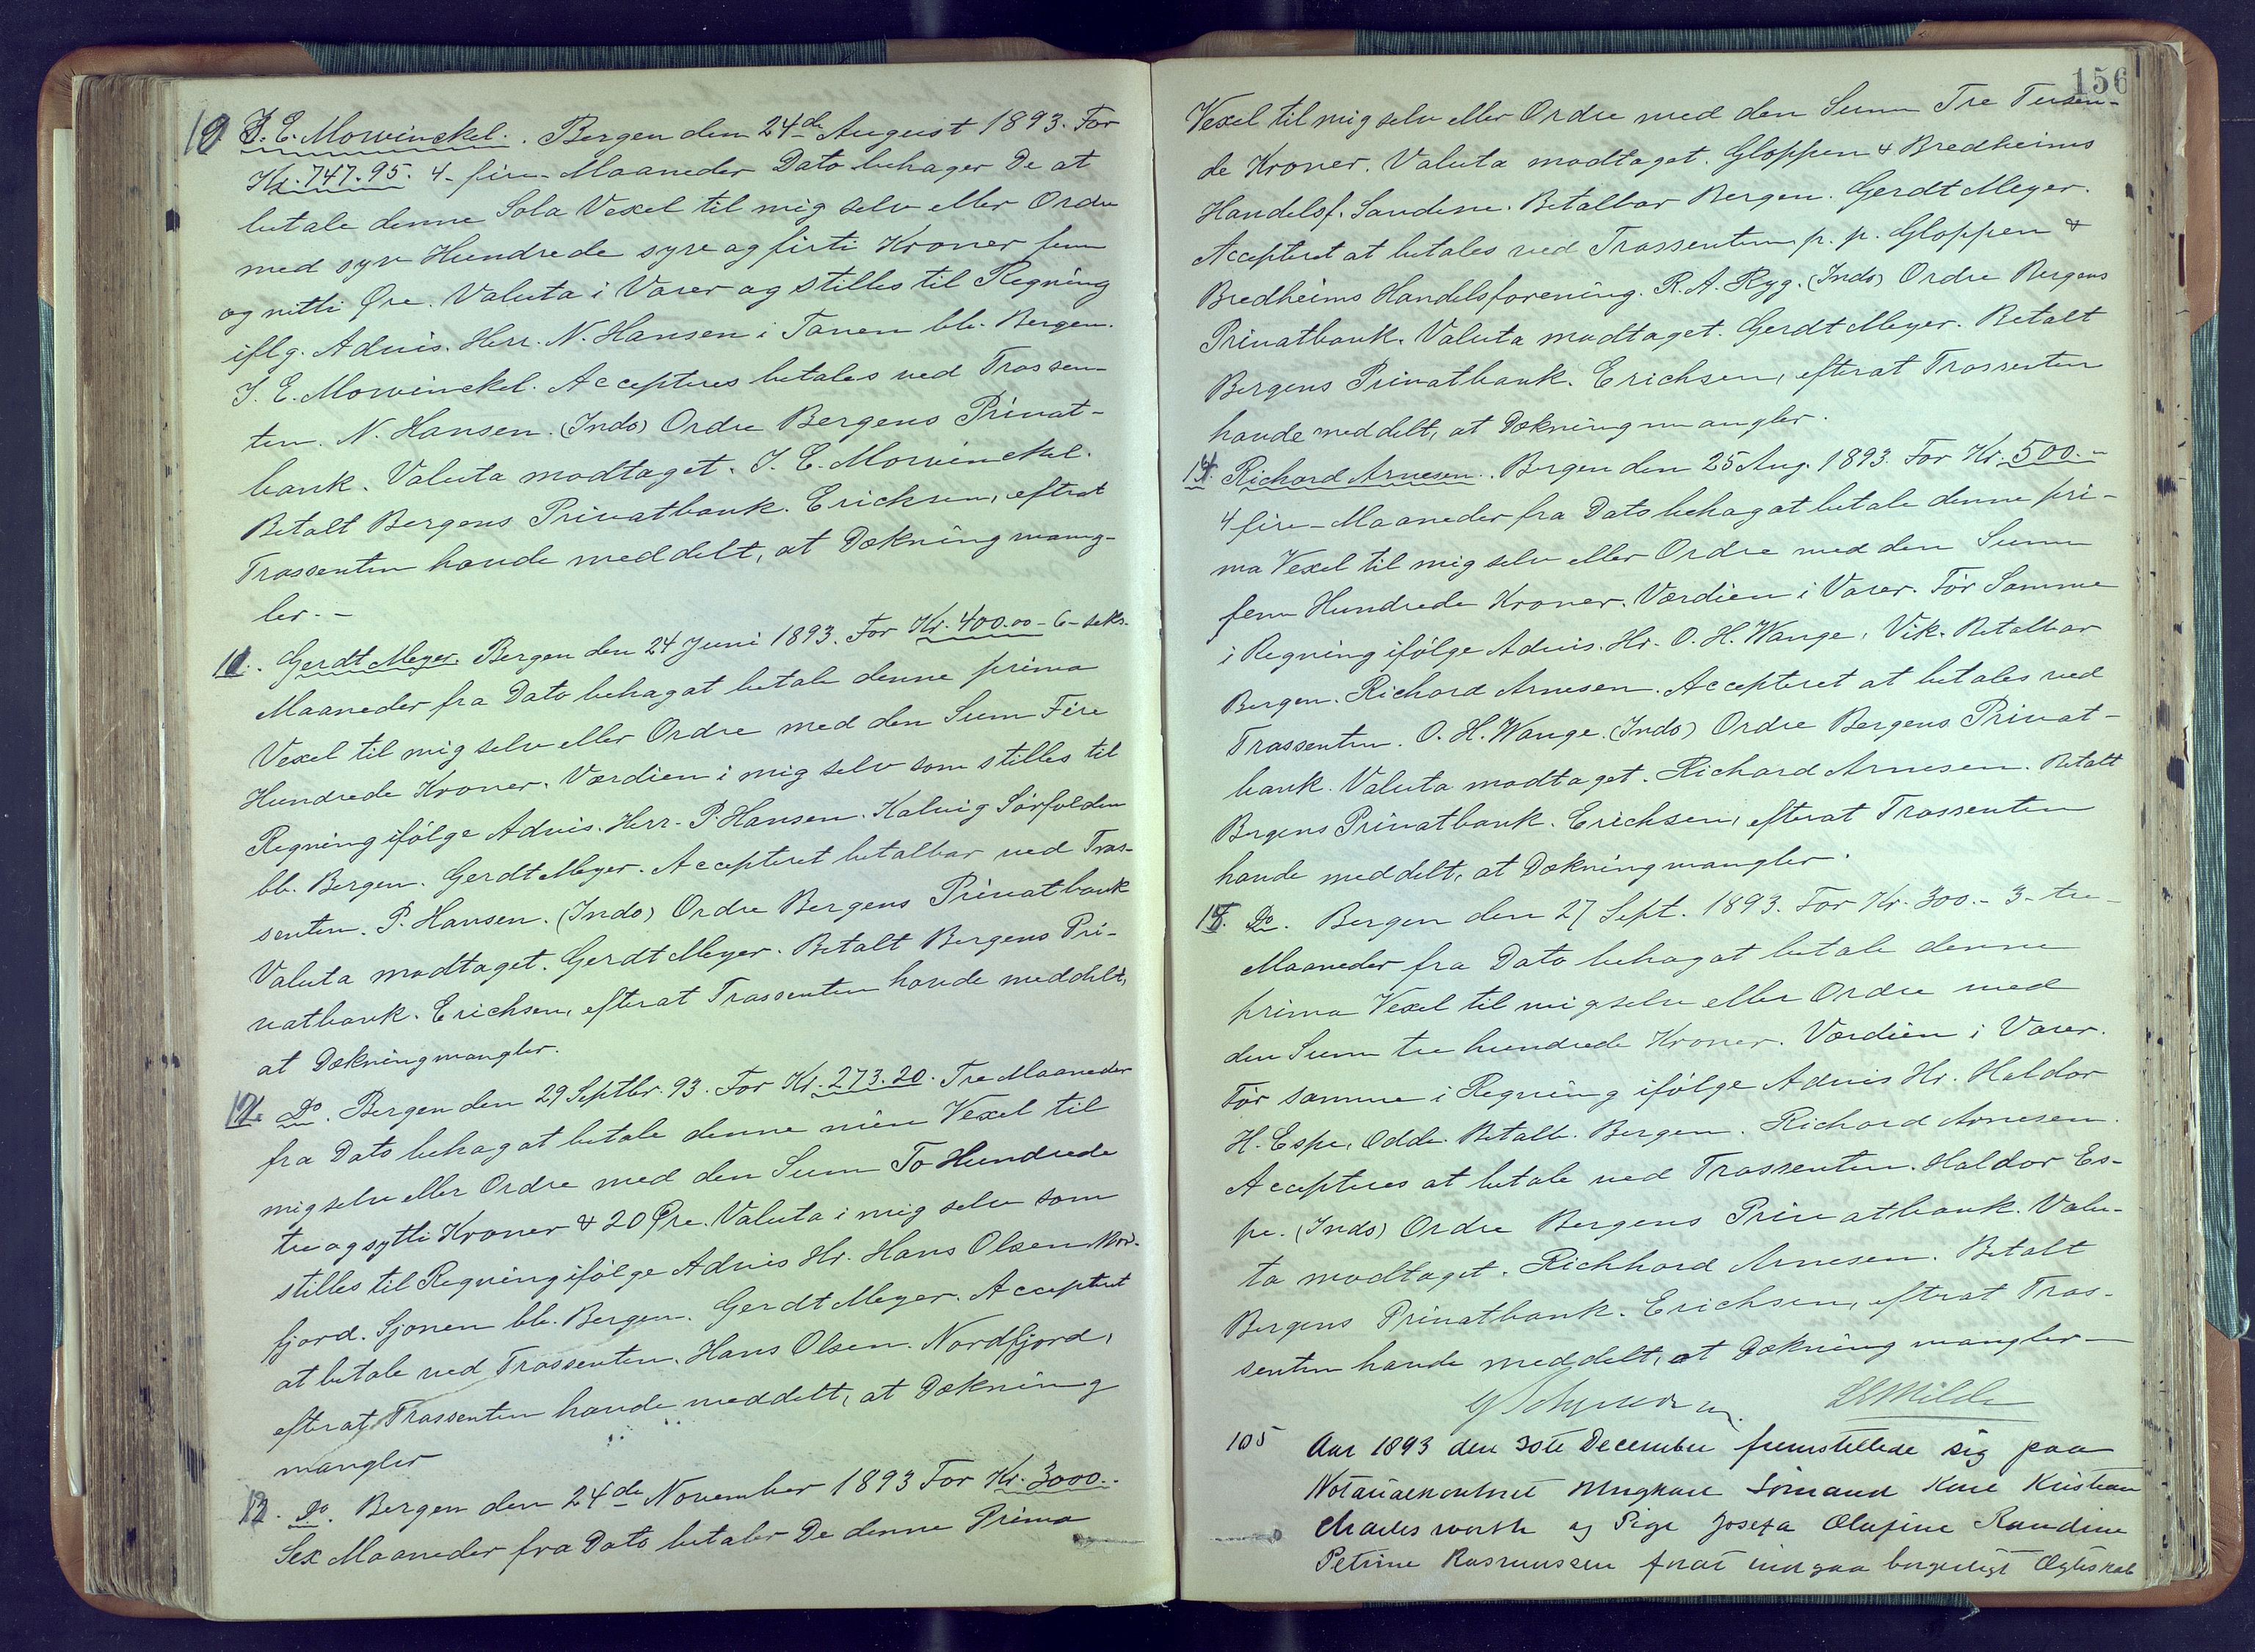 10. J. E. Mowinckel. Bergen den 24de August 1893. For
Kr. 747.95. 4 - fire - Maaneder Dato behager De at
betale denne Sola Vexel til mig selv eller Ordre
med syv Hundrede syv og firti Kroner fem
og nitti Øre. Valuta i Varer og stilles til Regning
iflg. Advis. Herr. N. Hansen i Tanem bb. Bergen.
J. E. Mowinckel. Acceptres betales ved Trassen-
ten. N. Hansen. (Indo) Ordre Bergens Privat-
bank. Valuta modtaget. J. E. Mowinckel.
Betalt Bergens Privatbank. Erichsen, efterat
Trassenten havde meddelt, at Dækning mang-
ler. -
11. Gerdt Meyer. Bergen den 24 Juni 1893. For Kr. 400.00 - 6 - seks.
Maaneder fra Dato behag at betale denne prima
Vexel til mig selv eller Ordre med den Sum Fire
Hundrede Kroner. Værdien i mig selv som stilles til
Regning ifølge Advis. Herr. P. Hansen. Kalvig Sørfolden
bb. Bergen. Gerdt Meyer. Accepteret betalbar ved Tras-
senten. P. Hansen. (Indo) Ordre Bergens Privatbank
Valuta modtaget. Gerdt Meyer. Betalt Bergens Pri-
vatbank. Erichsen, efterat Trassenten havde meddelt,
at Dækning mangler.
12. Do. Bergen den 29 Septbr. 93. For Kr. 273.20. Tre Maaneder
fra Dato behag at betale denne min Vexel til
mig selv eller Ordre med den Sum To Hundrede
tre og sytti Kroner & 20 Øre. Valuta i mig selv som
stilles til Regning ifølge Advis Hr. Hans Olsen Nord-
fjord. Sjonen bb. Bergen. Gerdt Meyer. Accepteret
at betale ved Trassenten. Hans Olsen. Nordfjord,
efterat Trassenten havde meddelt, at Dækning
mangler
13. Do. Bergen den 24de November 1893 For Kr. 3000..
Sex Maaneder fra Dato betaler De denne Prima
156
Vexel til mig selv eller Ordre med den Sum Tre Tusen-
de Kroner. Valuta modtaget. Gloppen & Bredheims
Handelsf. Sandene. Betalbar Bergen. Gerdt Meyer.
Accepteret at betales ved Trassenten p. p. Gloppen &
Bredheims Handelsforening. R. A. Ryg. (Indo) Ordre Bergens
Privatbank. Valuta modtaget. Gerdt Meyer. Betalt
Bergens Privatbank. Erichsen, efterat Trassenten
havde meddelt, at Dækning mangler.
14. Richard Arnesen. Bergen den 25 Aug. 1893. For Kr. 500. -
4 fire - Maaneder fra Dato behag at betale denne pri-
ma Vexel til mig selv eller Ordre med den Sum
fem Hundrede Kroner. Værdien i Varer. Før Samme
i Regning ifølge Advis. Hr. O. H. Wange, Vik. Betalbar
Bergen. Richard Arnesen. Accepteret at betales ved
Trassenten. O. H. Wange. (Indo) Ordre Bergens Privat-
bank. Valuta modtaget. Richard Arnesen. Betalt
Bergens Privatbank. Erichsen, efterat Trassenten
havde meddelt, at Dækning mangler.
15. Do. Bergen den 27 Sept. 1893. For Kr. 300. - 3 - tre -
Maaneder fra Dato behag at betale denne
prima Vexel til mig selv eller Ordre med
den Sum tre hundrede Kroner. Værdien i Varer.
Før samme i Regning ifølge Advis Hr. Haldor
H. Espe, Odde. Betalb. Bergen. Richard Arnesen.
Acceptres at betale ved Trassenten. Haldor Es-
pe. (Indo) Ordre Bergens Privatbank. Valu-
ta modtaget. Richhard Arnesen. Betalt
Bergens Privatbank. Erichsen, efterat Tras-
senten havde meddelt, at Dækning mangler -
Milde
105 Aar 1893 den 30te December fremstillede sig paa
Notarialkontoret Ungkarl Sømand Karl Kristian
Charlesworth og Pige Josefa Olufine Randine
Petrine Rasmussen forat indgaa borgerligt Ægteskab